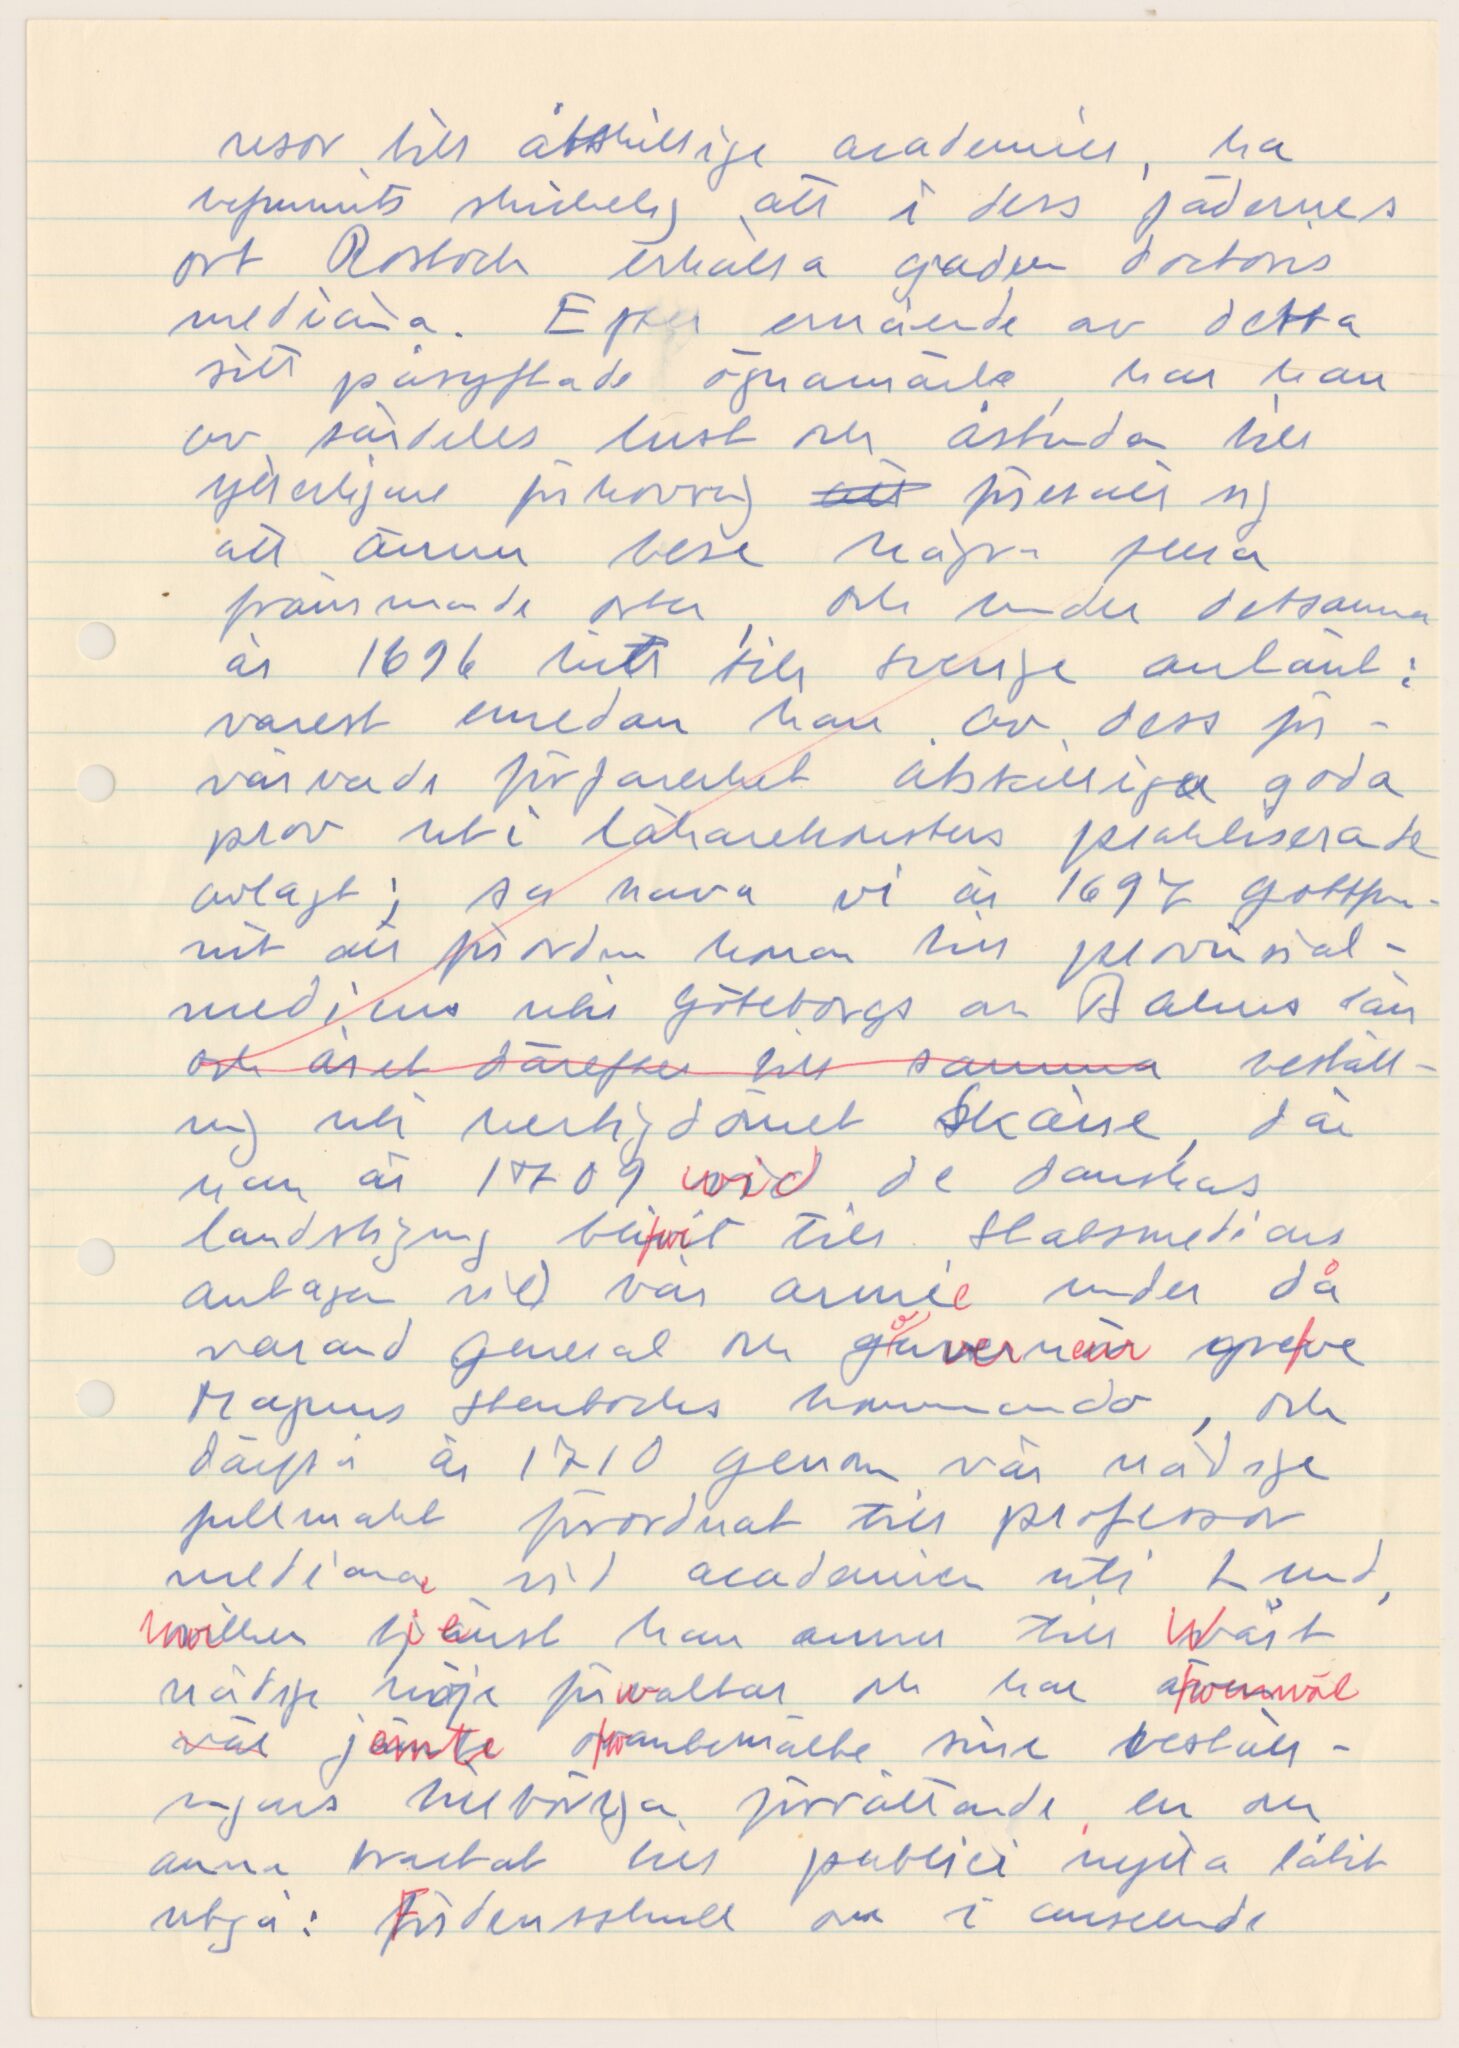 resor till åtskillige academier, ha
befunnits skickelig att i dess fädernes
ort Rostock erhålla graden doctoris
medicina. Efter ernående av detta
sitt påsyftade ögnamärke, har han
av särdeles lust och åstundan till
ytterligare förkovring att föresatt sig
att ännu bese några flera
främmande orter, och under detsamma
år 1696 hitt till Sverige anlänt:
varest emedan han av dess för-
värvade förfarenhet åtskilliga goda
prov uti läkarekonstens praktiserande
avlagt; så hava vi år 1697 gottfun-
nit att förordna honom till provinsial-
medicus uti Göteborgs och Bahus län
och året därefter till samma beställ-
ning uti hertigdömet Skåne, där
han år 1709 wid de danskas
landstigning blifwit till Stabsmedicus
antagen vid vår armée under då
varand general och gouverneur grefve
Magnus Stenbocks kommando, och
därpå år 1710 genom vår nådige
fullmakt förordnat till professor
medicinae vid academien uti Lund,
hwilken tjenst han ännu till Wårt
nådige nöje förwaltar och har äfwenwäl
väl jemte ofwanbemälte sine beställ-
ningars tillbörliga förrättande, en och
anna tractat till publici nytta låtit
utgå: Fördensskull och i anseende